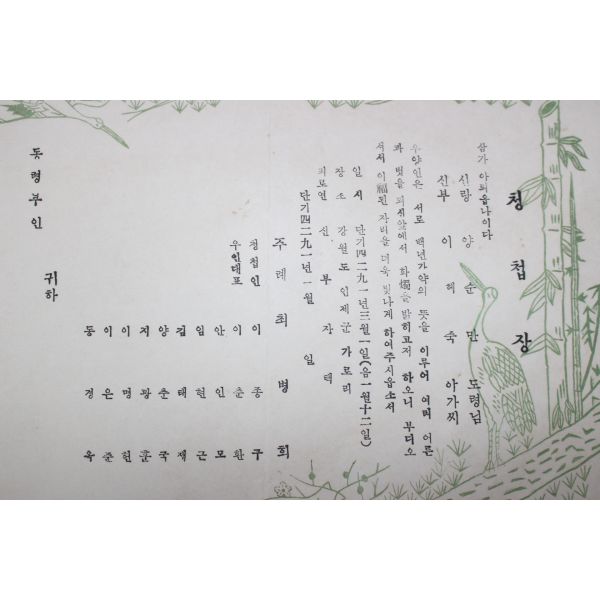 청첩장
삼가 아뢰옵나이다
신랑 양순만 도령님
신부 이혜숙 아가씨
우 양인은 서로 백년가약의 뜻을 이루어 여러 어른
과 벗을 뫼신앞에서 화燭을 밝히고저 하오니 부디오
셔서 이 福된 자리를 더욱 빛나게 하여주시옵소서
일시 단기四二九一年三월一일(음一월十二일)
장소 강원도 인제군 가로리
피로연 신부자택
단기四二九一年一월 일
주례 최병희
청첩인 이종구
우인대표 이춘환
안인모
임헌근
김태재
양춘국
지광훈
이명헌
이은준
동경옥
동령부인 귀하